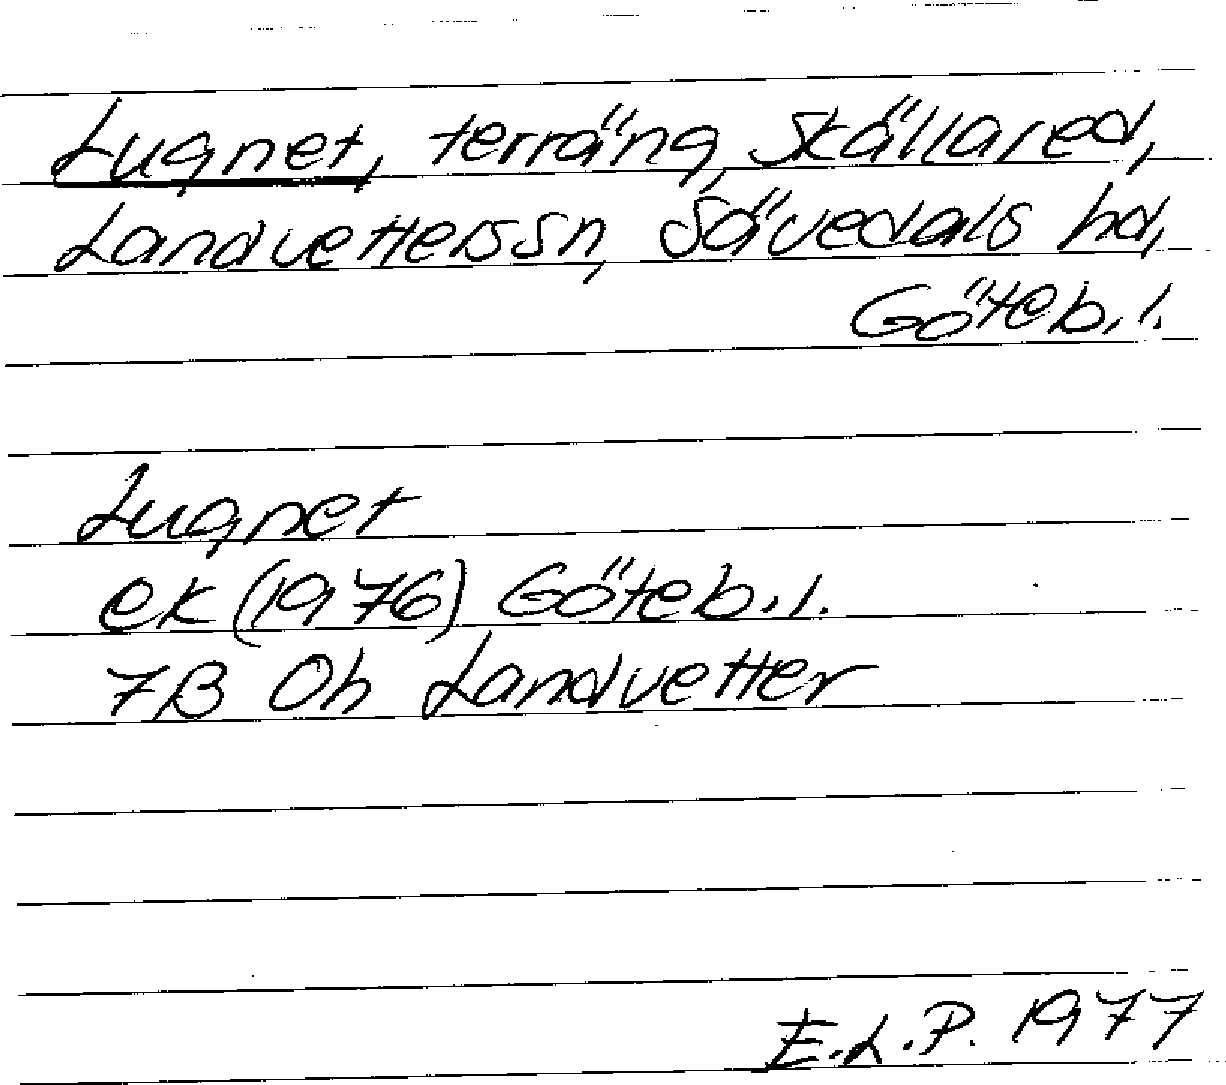 Lugnet, terräng, Skällared,
Landvetters sn, Sävedals hd,
Göteb. l.
Lugnet
ek (1976) Göteb. l.
7B Oh Landvetter
E.L.P. 1977